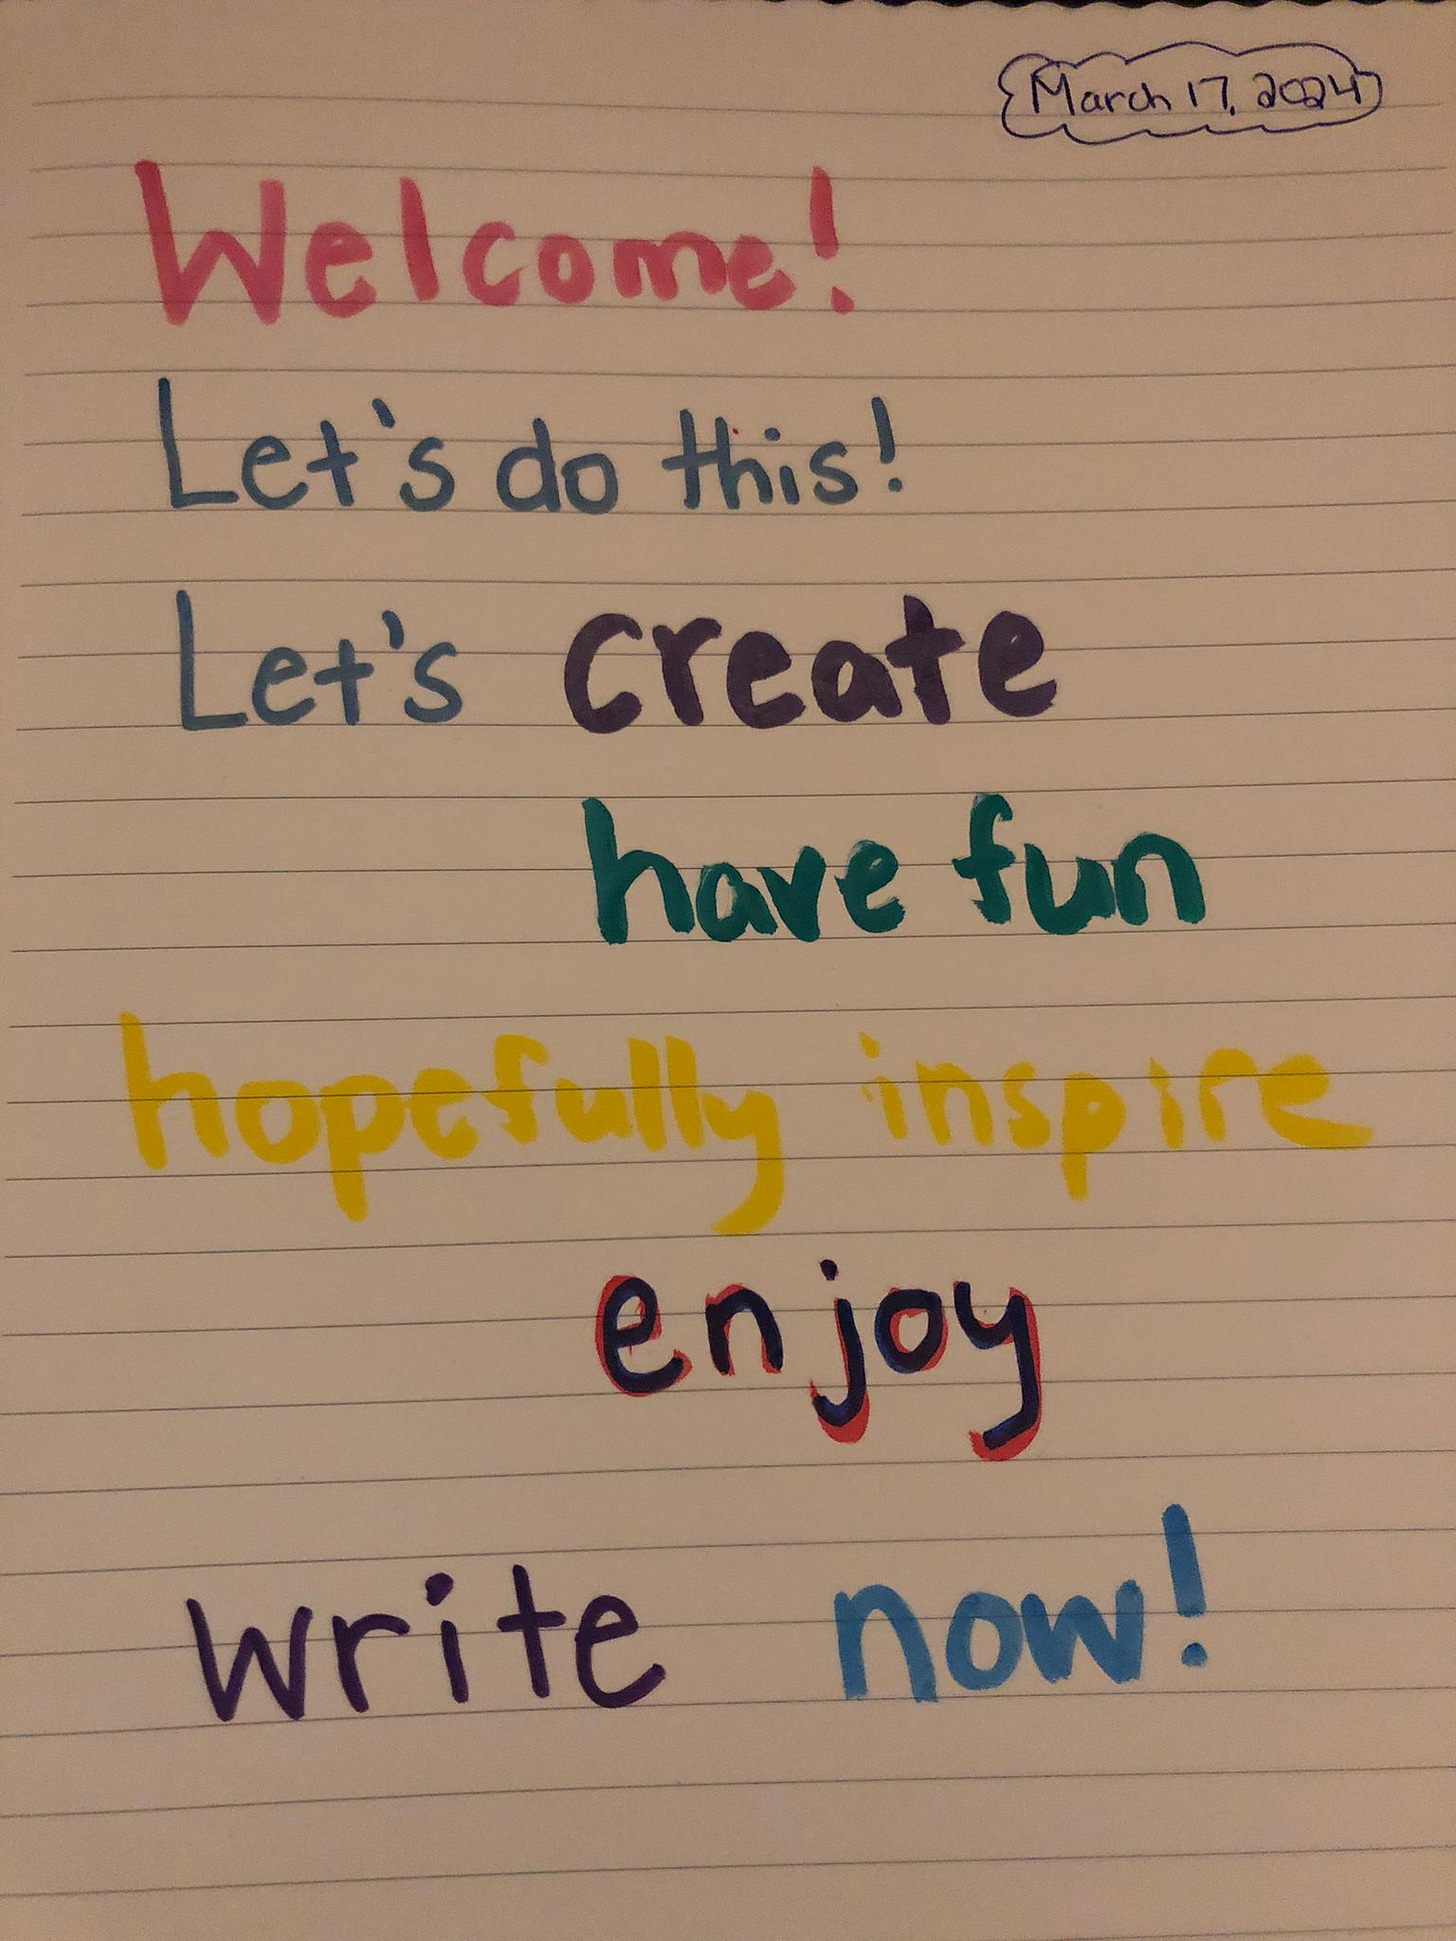 March 17, 2024
Welcome!
Let's do this!
Let's create
have fun
hopefully inspire
enjoy
write now!